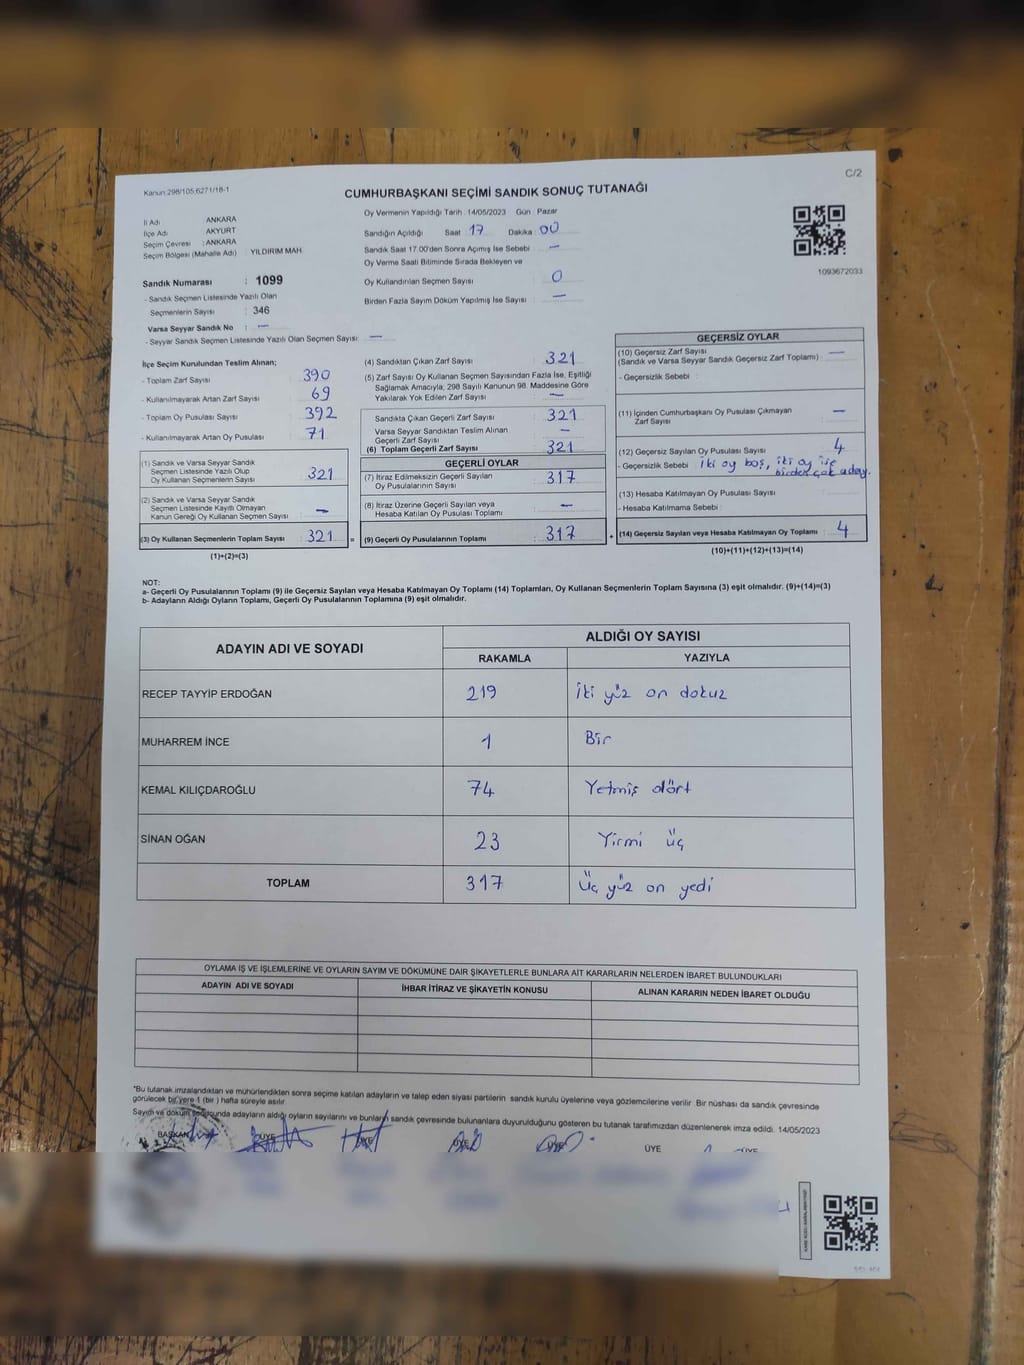 C/2
Kanun:298/105;6271/18-1
CUMHURBAŞKANI SEÇİMİ SANDIK SONUÇ TUTANAĞI
İl Adı : ANKARA
İlçe Adı : AKYURT
Seçim Çevresi : ANKARA
Seçim Bölgesi (Mahalle Adı) : YILDIRIM MAH.
Sandık Numarası : 1099
- Sandık Seçmen Listesinde Yazılı Olan
Seçmenlerin Sayısı : 346
Varsa Seyyar Sandık No : —
- Seyyar Sandık Seçmen Listesinde Yazılı Olan Seçmen Sayısı: —
Oy Vermenin Yapıldığı Tarih : 14/05/2023 Gün : Pazar
Sandığın Açıldığı Saat 17 Dakika 00
Sandık Saat 17.00'den Sonra Açımış İse Sebebi : —
Oy Verme Saati Bitiminde Sırada Bekleyen ve
Oy Kullandırılan Seçmen Sayısı : 0
Birden Fazla Sayım Döküm Yapılmış İse Sayısı : —
1093672033
İlçe Seçim Kurulundan Teslim Alınan;
- Toplam Zarf Sayısı : 390
- Kullanılmayarak Artan Zarf Sayısı : 69
- Toplam Oy Pusulası Sayısı : 392
- Kullanılmayarak Artan Oy Pusulası : 71
(1) Sandık ve Varsa Seyyar Sandık
Seçmen Listesinde Yazılı Olup
Oy Kullanan Seçmenlerin Sayısı : 321
(2) Sandık ve Varsa Seyyar Sandık
Seçmen Listesinde Kayıtlı Olmayan
Kanun Gereği Oy Kullanan Seçmen Sayısı : —
(3) Oy Kullanan Seçmenlerin Toplam Sayısı : 321 =
(1)+(2)=(3)
(4) Sandıktan Çıkan Zarf Sayısı : 321
(5) Zarf Sayısı Oy Kullanan Seçmen Sayısından Fazla İse, Eşitliği
Sağlamak Amacıyla; 298 Sayılı Kanunun 98. Maddesine Göre
Yakılarak Yok Edilen Zarf Sayısı : —
Sandıkta Çıkan Geçerli Zarf Sayısı : 321
Varsa Seyyar Sandıktan Teslim Alınan
Geçerli Zarf Sayısı : —
(6) Toplam Geçerli Zarf Sayısı : 321
GEÇERLİ OYLAR
(7) İtiraz Edilmeksizin Geçerli Sayılan
Oy Pusulalarının Sayısı : 317
(8) İtiraz Üzerine Geçerli Sayılan veya
Hesaba Katılan Oy Pusulası Toplamı : —
(9) Geçerli Oy Pusulalarının Toplamı : 317 +
GEÇERSİZ OYLAR
(10) Geçersiz Zarf Sayısı
(Sandık ve Varsa Seyyar Sandık Geçersiz Zarf Toplamı) : —
- Geçersizlik Sebebi :
(11) İçinden Cumhurbaşkanı Oy Pusulası Çıkmayan
Zarf Sayısı : —
(12) Geçersiz Sayılan Oy Pusulası Sayısı : 4
- Geçersizlik Sebebi : iki oy boş, iki oy ise
birden çok aday.
(13) Hesaba Katılmayan Oy Pusulası Sayısı :
- Hesaba Katılmama Sebebi :
(14) Geçersiz Sayılan veya Hesaba Katılmayan Oy Toplamı : 4
(10)+(11)+(12)+(13)=(14)
NOT:
a- Geçerli Oy Pusulalarının Toplamı (9) ile Geçersiz Sayılan veya Hesaba Katılmayan Oy Toplamı (14) Toplamları, Oy Kullanan Seçmenlerin Toplam Sayısına (3) eşit olmalıdır. (9)+(14)=(3)
b- Adayların Aldığı Oyların Toplamı, Geçerli Oy Pusulalarının Toplamına (9) eşit olmalıdır.
ADAYIN ADI VE SOYADI ALDIĞI OY SAYISI
RAKAMLA YAZIYLA
RECEP TAYYİP ERDOĞAN 219 İki yüz on dokuz
MUHARREM İNCE 1 Bir
KEMAL KILIÇDAROĞLU 74 Yetmiş dört
SİNAN OĞAN 23 Yirmi üç
TOPLAM 317 Üç yüz on yedi
OYLAMA İŞ VE İŞLEMLERİNE VE OYLARIN SAYIM VE DÖKÜMÜNE DAİR ŞİKAYETLERLE BUNLARA AİT KARARLARIN NELERDEN İBARET BULUNDUKLARI
ADAYIN ADI VE SOYADI İHBAR İTİRAZ VE ŞİKAYETİN KONUSU ALINAN KARARIN NEDEN İBARET OLDUĞU
*Bu tutanak imzalandıktan ve mühürlendikten sonra seçime katılan adayların ve talep eden siyasi partilerin sandık kurulu üyelerine veya gözlemcilerine verilir. Bir nüshası da sandık çevresinde
görülecek bir yere 1 (bir ) hafta süreyle asılır.
Sayım ve döküm sonucunda adayların aldığı oyların sayılarını ve bunların sandık çevresinde bulunanlara duyurulduğunu gösteren bu tutanak tarafımızdan düzenlenerek imza edildi. 14/05/2023
BAŞKAN ÜYE ÜYE ÜYE ÜYE ÜYE ÜYE